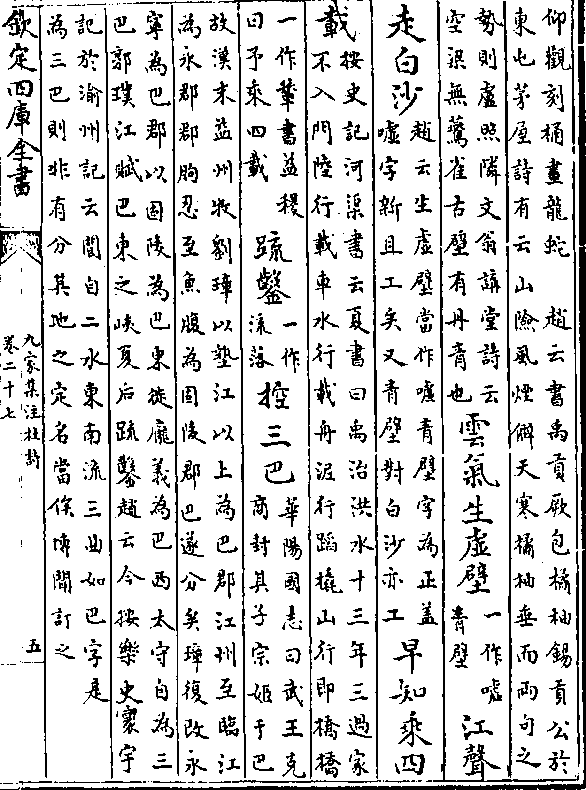 仰觀刻桷畫龍蛇　趙云書禹貢厥包橘柚錫貢公於
東屯茅屋詩有云山險風煙僻天寒橘柚垂而兩句之
勢則盧照隣文翁講堂詩云
空梁無鷰雀古壁有丹青也
雲氣生虛壁
一作噓
青壁
江聲
走白沙
趙云生虛壁當作噓青壁字為正蓋
噓字新且工矣又青壁對白沙亦工
早知乘四
載
按史記河渠書云夏書曰禹治洪水十三年三過家
不入門陸行載車水行載舟泥行蹈橇山行即橋橋
一作輂書益稷
曰予乘四載
疏鑿
一作
流落
控三巴
華陽國志曰武王克
商封其子宗姬于巴
故漢末益州牧劉璋以墊江以上為巴郡江州至臨江
為永郡郡朐忍至魚腹為固陵郡巴遂分矣璋復改永
寧為巴郡以固陵為巴東徙龐羲為巴西太守自為三
巴郭璞江賦巴東之峽夏后疏鑿趙云今按樂史寰宇
記於渝州記云閬白二水東南流三曲如巴字是
為三巴則非有分其地之定名當俟博聞訂之
欽定四庫全書
九家集注杜詩
卷二十七
五